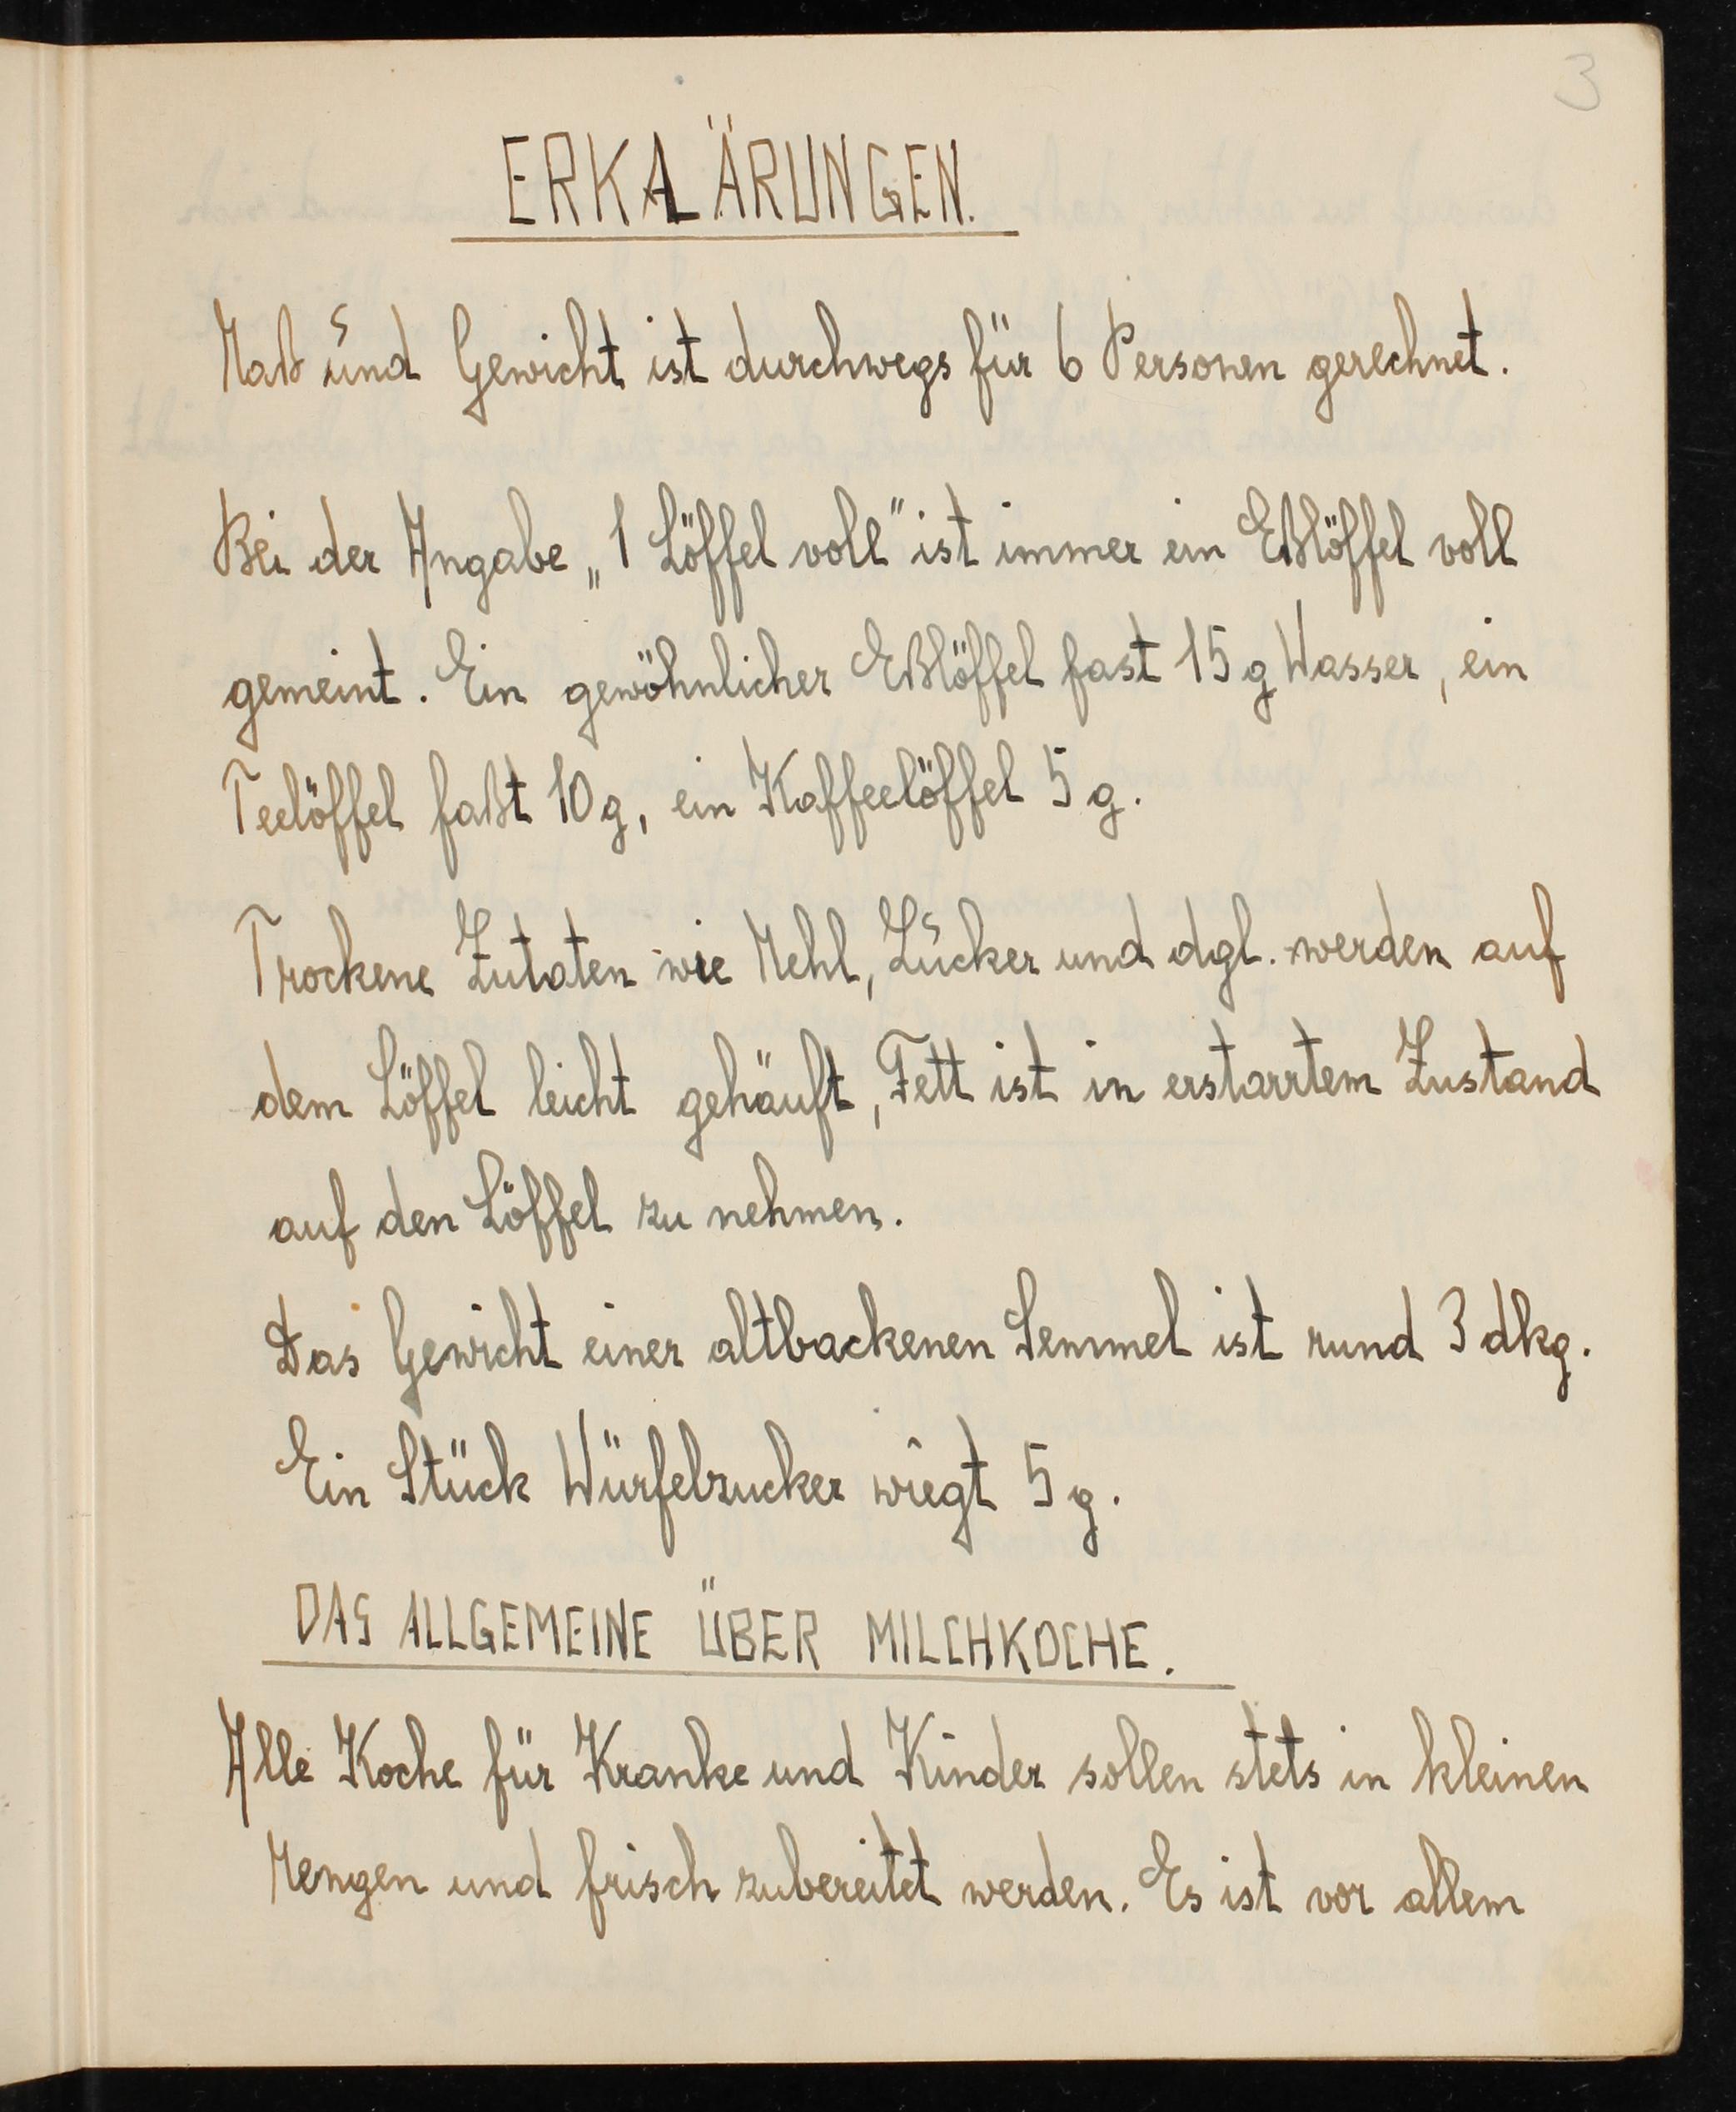 3
ERKLÄRUNGEN.
Maß und Gewicht ist durchwegs für 6 Personen gerechnet.
Bei der Angabe „1 Löffel voll" ist immer ein Eßlöffel voll
gemeint. Ein gewöhnlicher Eßlöffel fast 15 g Wasser, ein
Teelöffel faßt 10 g, ein Kaffeelöffel 5 g.
Trockene Zutaten wie Mehl, Zucker und dgl. werden auf
dem Löffel leicht gehäuft, Fett ist in erstarrtem Zustand
auf den Löffel zu nehmen.
Das Gewicht einer altbackenen Semmel ist rund 3 dkg.
Ein Stück Würfelzucker wiegt 5 g.
DAS ALLGEMEINE ÜBER MILCHKOCHE.
Alle Koche für Kranke und Kinder sollen stets in kleinen
Mengen und frisch zubereitet werden. Es ist vor allem